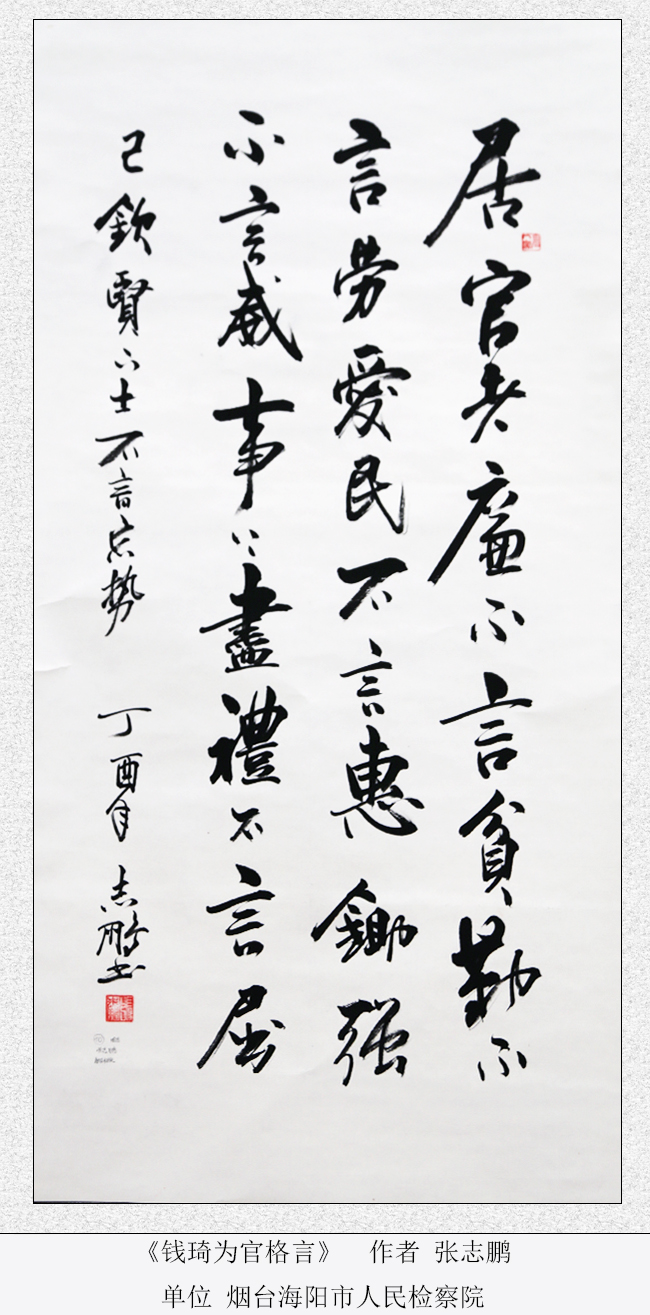 居官者廉不言貧勤不
言劳愛民不言惠鋤强
不言威事上盡禮不言屈
己欽賢下士不言忘势 丁酉年 志鹏书
《钱琦为官格言》 作者 张志鹏
单位 烟台海阳市人民检察院